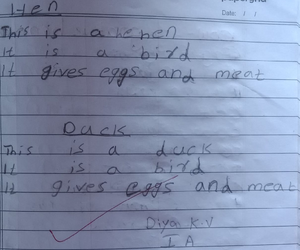 Hen
Date: / /
This is a hehen
It is a bird
It gives eggs and meat
Duck
This is a duck
It is a bird
It gives eggs and meat
Diya K.V
I A